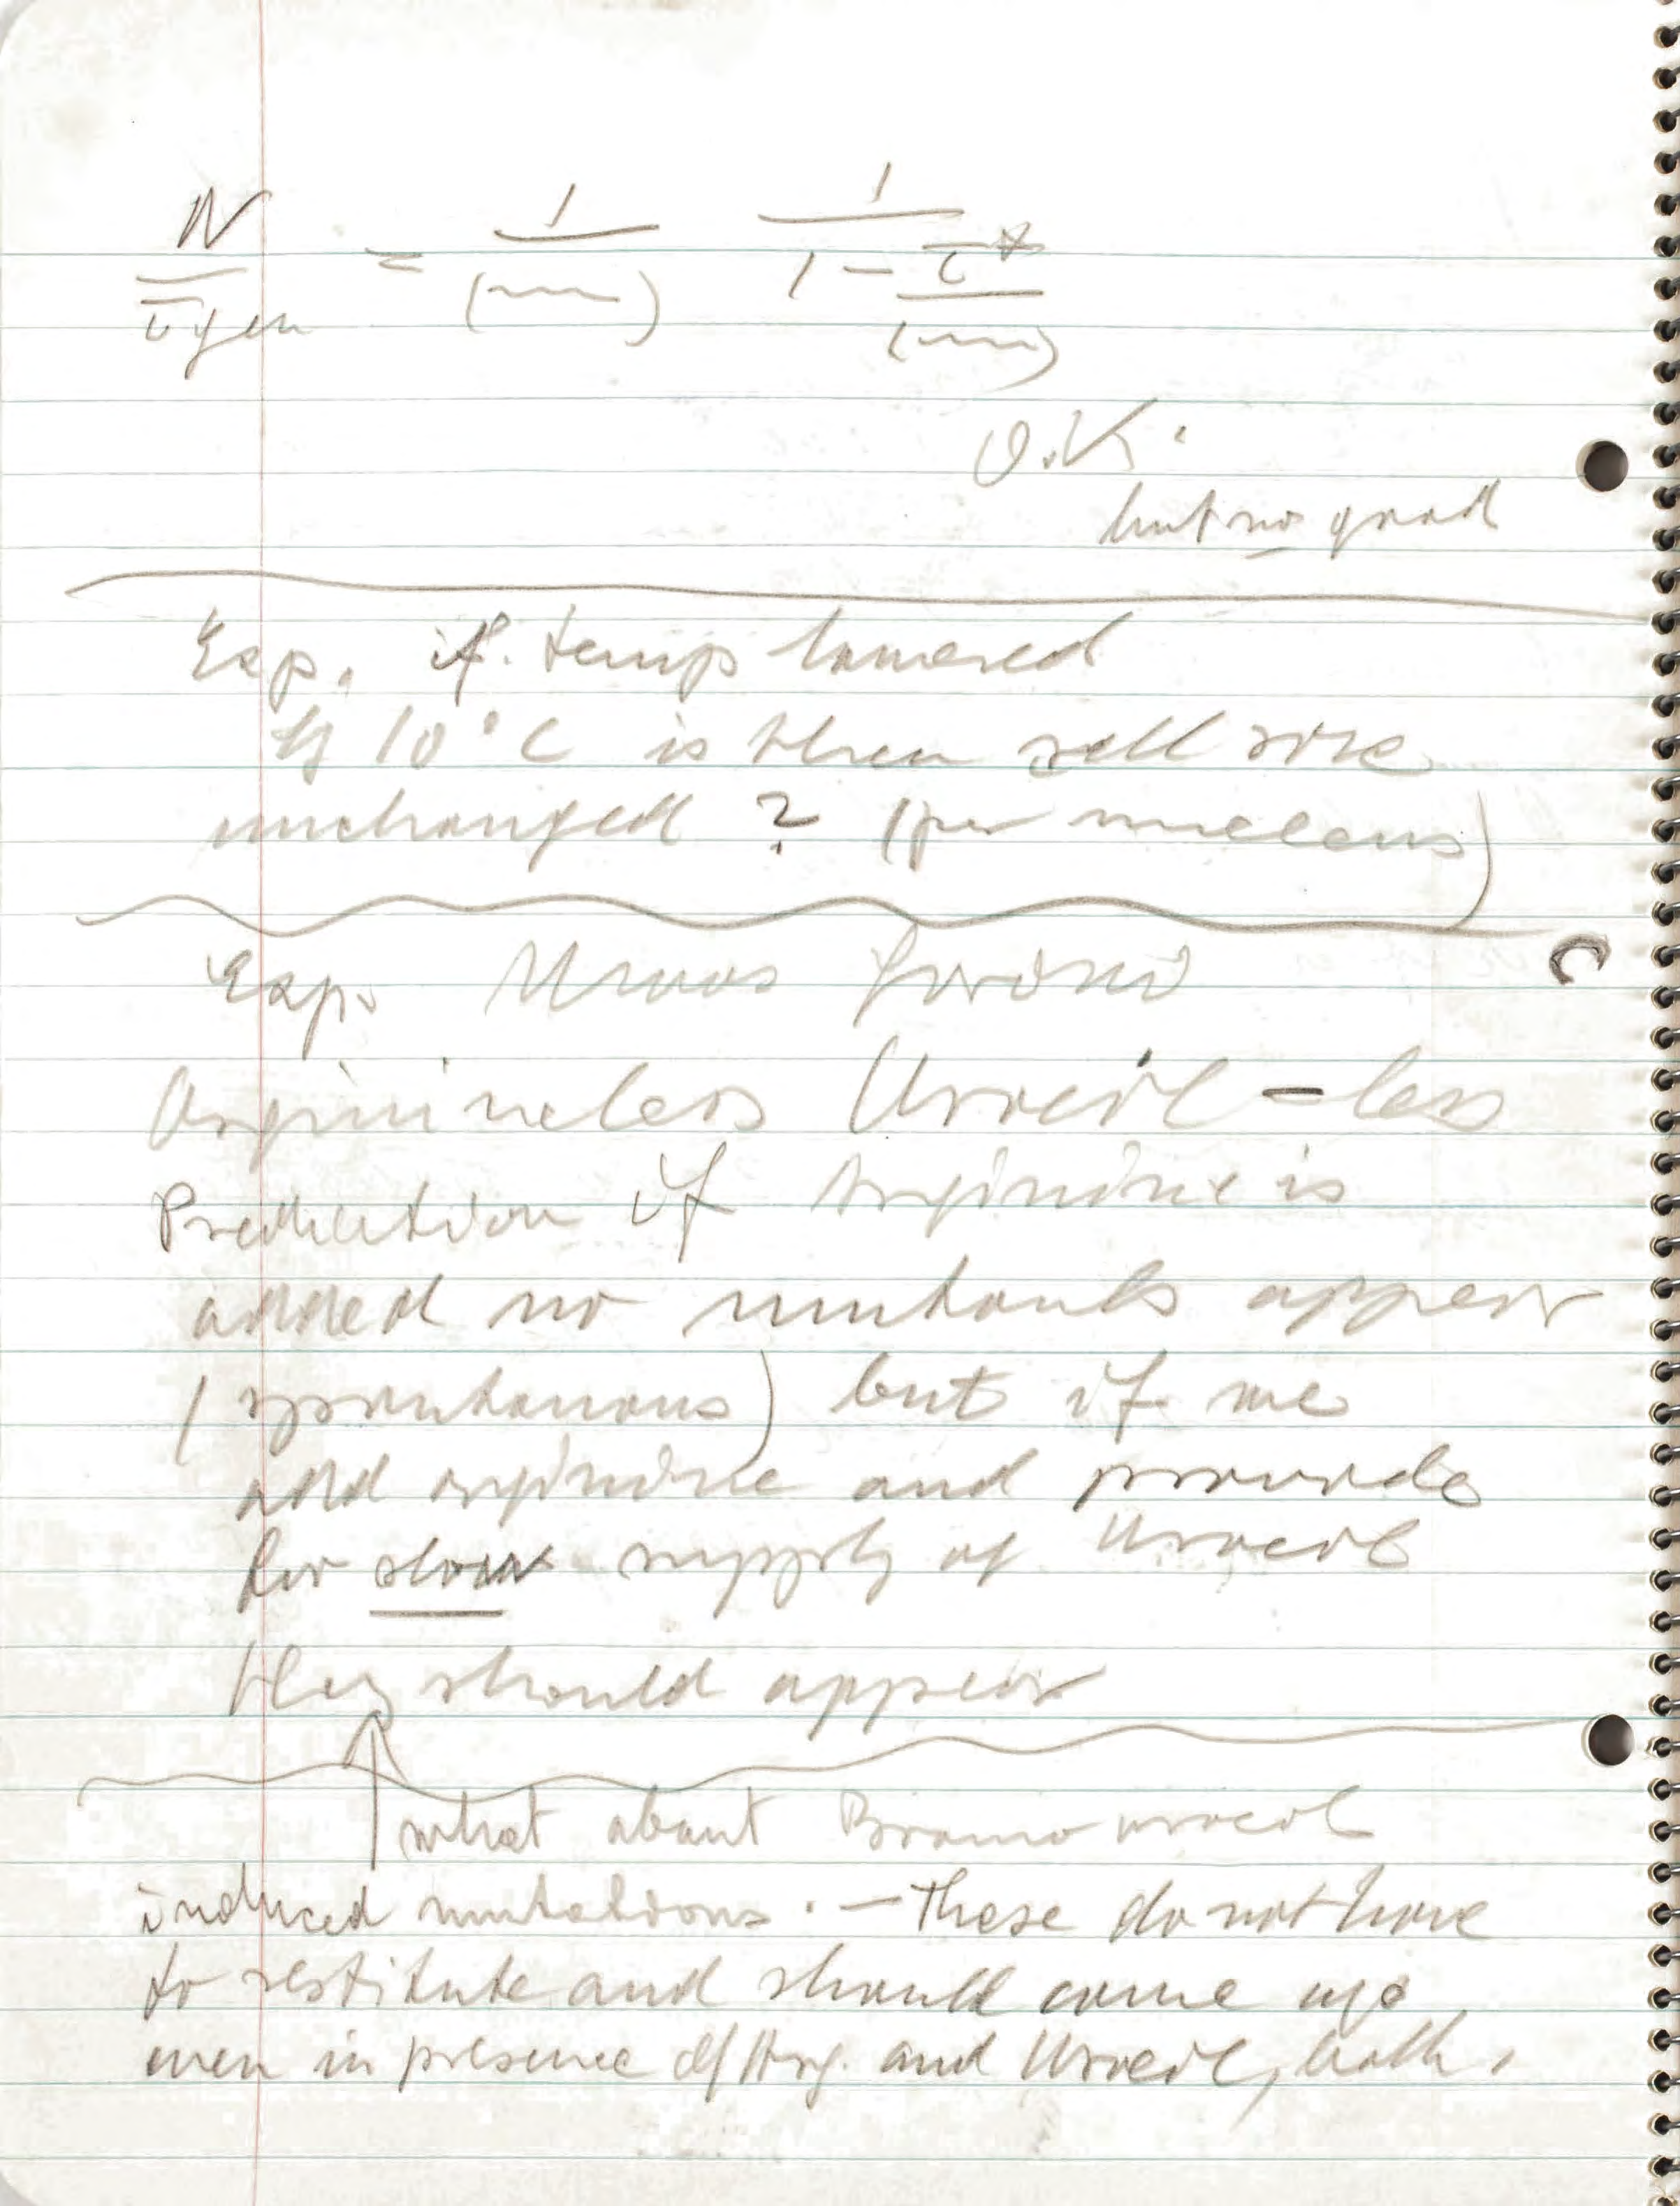 N/τgen = 1/(m) 1/(1 − τ*/(m))
O.K.
but no good
Exp. if temp lowered
by 10°C is then cell size
unchanged ? (per nucleus)
Exp.
Arginineless Uracil-less
Prediction if Arginine is
added no mutants appear
(spontanous) but if we
add arginine and provide
for slow supply of Uracil
they should appear
what about Bromouracil
induced mutations. — These do not have
to restitute and should come up
even in presence of Arg. and Uracil, both.